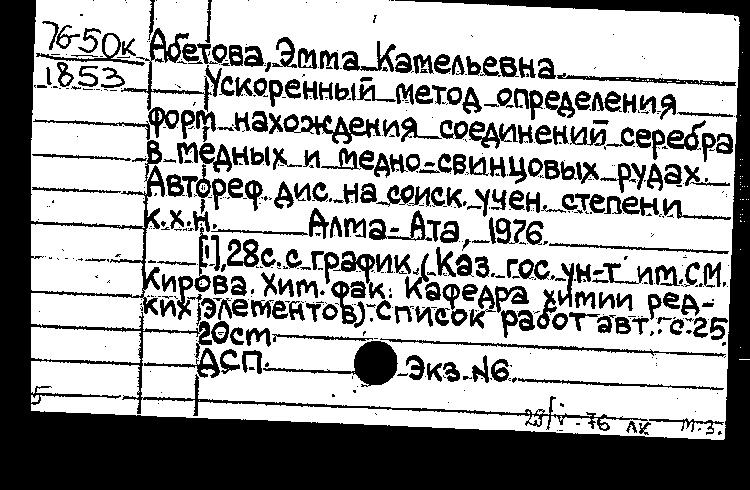 76-50к Абетова, Эмма Камельевна.
1853 Ускоренный метод определения
форм нахождения соединений серебра
в медных и медно-свинцовых рудах.
Автореф. дис. на соиск. учен. степени
к.х.н. Алма-Ата, 1976.
[1], 28с. с график. (Каз. гос. ун-т им. С.М.
Кирова. Хим. фак. Кафедра химии ред-
ких элементов). Список работ авт.: с. 25
20ст.
ДСП. Экз. №6.
5 29/V-76 АК М.З.